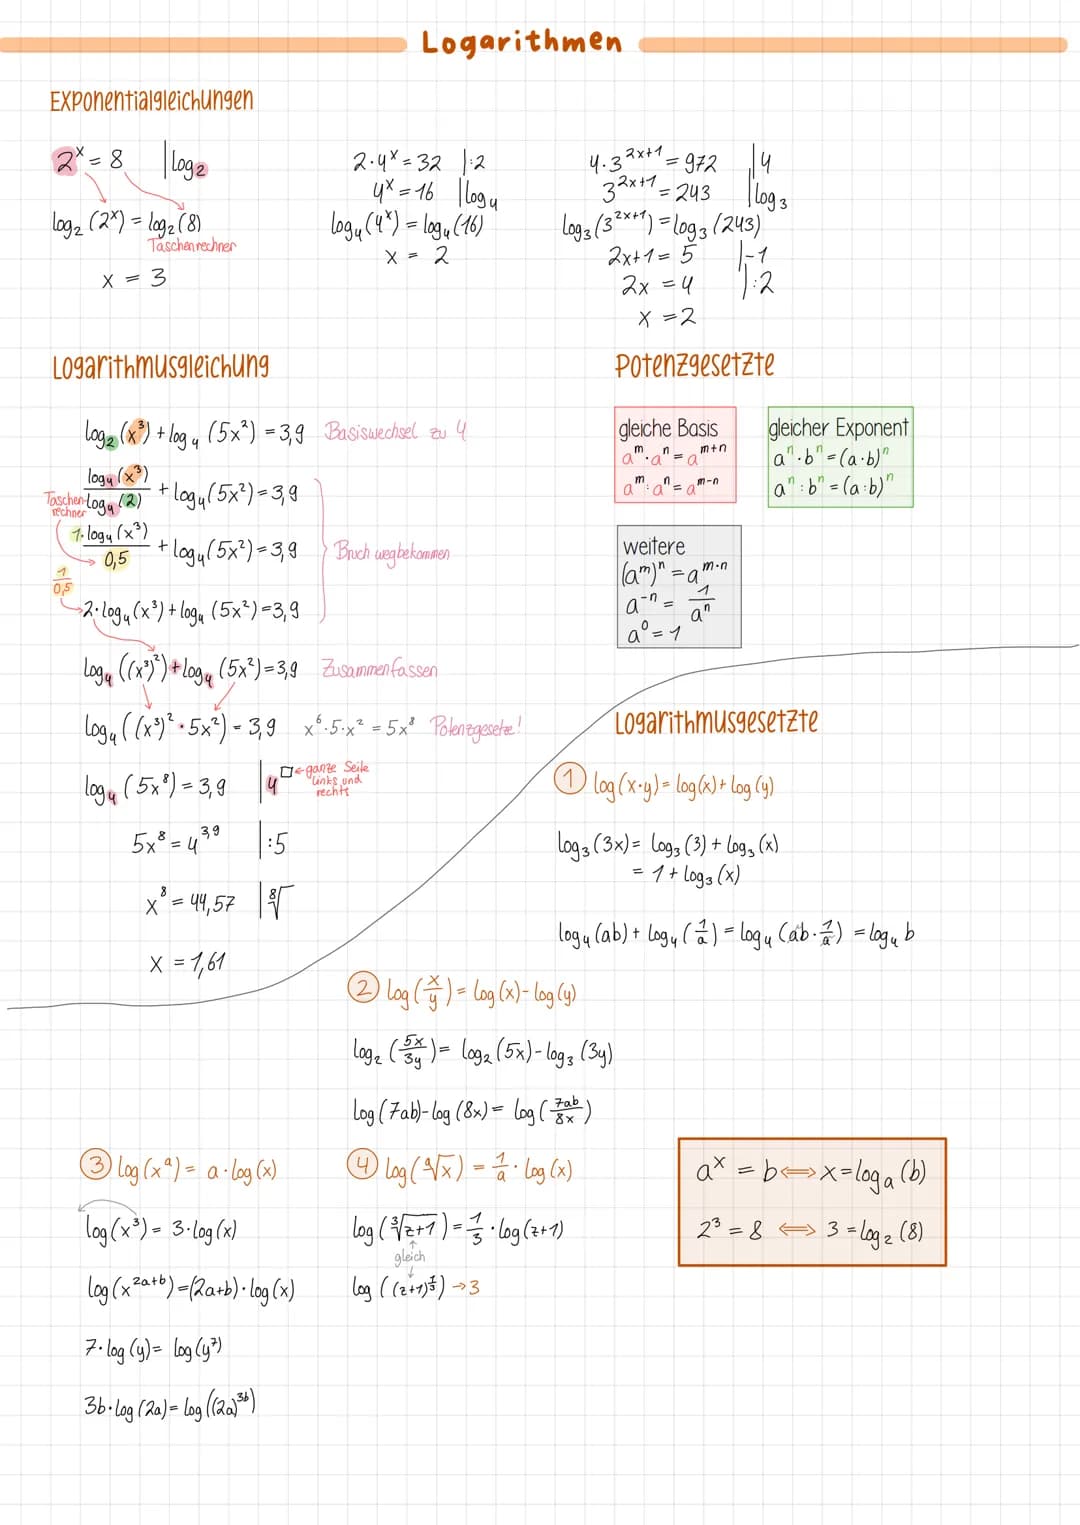 Logarithmen
Exponentialgleichungen
2^x = 8 | log₂
log₂ (2^x) = log₂ (8)
Taschenrechner
x = 3
2·4^x = 32 |:2
4^x = 16 | log₄
log₄ (4^x) = log₄ (16)
x = 2
4·3^(2x+1) = 972 | 4
3^(2x+1) = 243 | log₃
log₃ (3^(2x+1)) = log₃ (243)
2x+1 = 5 |-1
2x = 4 |:2
x = 2
Logarithmusgleichung
log₂ (x³) + log₄ (5x²) = 3,9 Basiswechsel zu 4
log₄ (x³) / log₄ (2) + log₄ (5x²) = 3,9
Taschen-
rechner
1·log₄ (x³) / 0,5 + log₄ (5x²) = 3,9 Bruch wegbekommen
1/0,5
2·log₄ (x³) + log₄ (5x²) = 3,9
log₄ ((x³)²) + log₄ (5x²) = 3,9 Zusammenfassen
log₄ ((x³)² · 5x²) = 3,9 x⁶·5·x² = 5x⁸ Potenzgesetze!
log₄ (5x⁸) = 3,9 | 4^□ ← ganze Seite
links und
rechts
5x⁸ = 4^3,9 |:5
x⁸ = 44,57 | ⁸√
x = 1,61
Potenzgesetzte
gleiche Basis
a^m · a^n = a^(m+n)
a^m : a^n = a^(m-n)
gleicher Exponent
a^n · b^n = (a·b)^n
a^n : b^n = (a:b)^n
weitere
(a^m)^n = a^(m·n)
a^-n = 1/a^n
a⁰ = 1
Logarithmusgesetzte
① log (x·y) = log (x) + log (y)
log₃ (3x) = log₃ (3) + log₃ (x)
= 1 + log₃ (x)
log₄ (ab) + log₄ (1/a) = log₄ (ab · 1/a) = log₄ b
② log (x/y) = log (x) - log (y)
log₂ (5x/3y) = log₂ (5x) - log₃ (3y)
log (7ab) - log (8x) = log (7ab/8x)
③ log (x^a) = a · log (x)
log (x³) = 3·log (x)
log (x^(2a+b)) = (2a+b) · log (x)
7·log (y) = log (y⁷)
3b·log (2a) = log ((2a)^3b)
④ log (ᵃ√x) = 1/a · log (x)
log (³√z+1) = 1/3 · log (z+1)
gleich
log ((z+1)^1/3) → 3
a^x = b ⟺ x = logₐ (b)
2³ = 8 ⟺ 3 = log₂ (8)